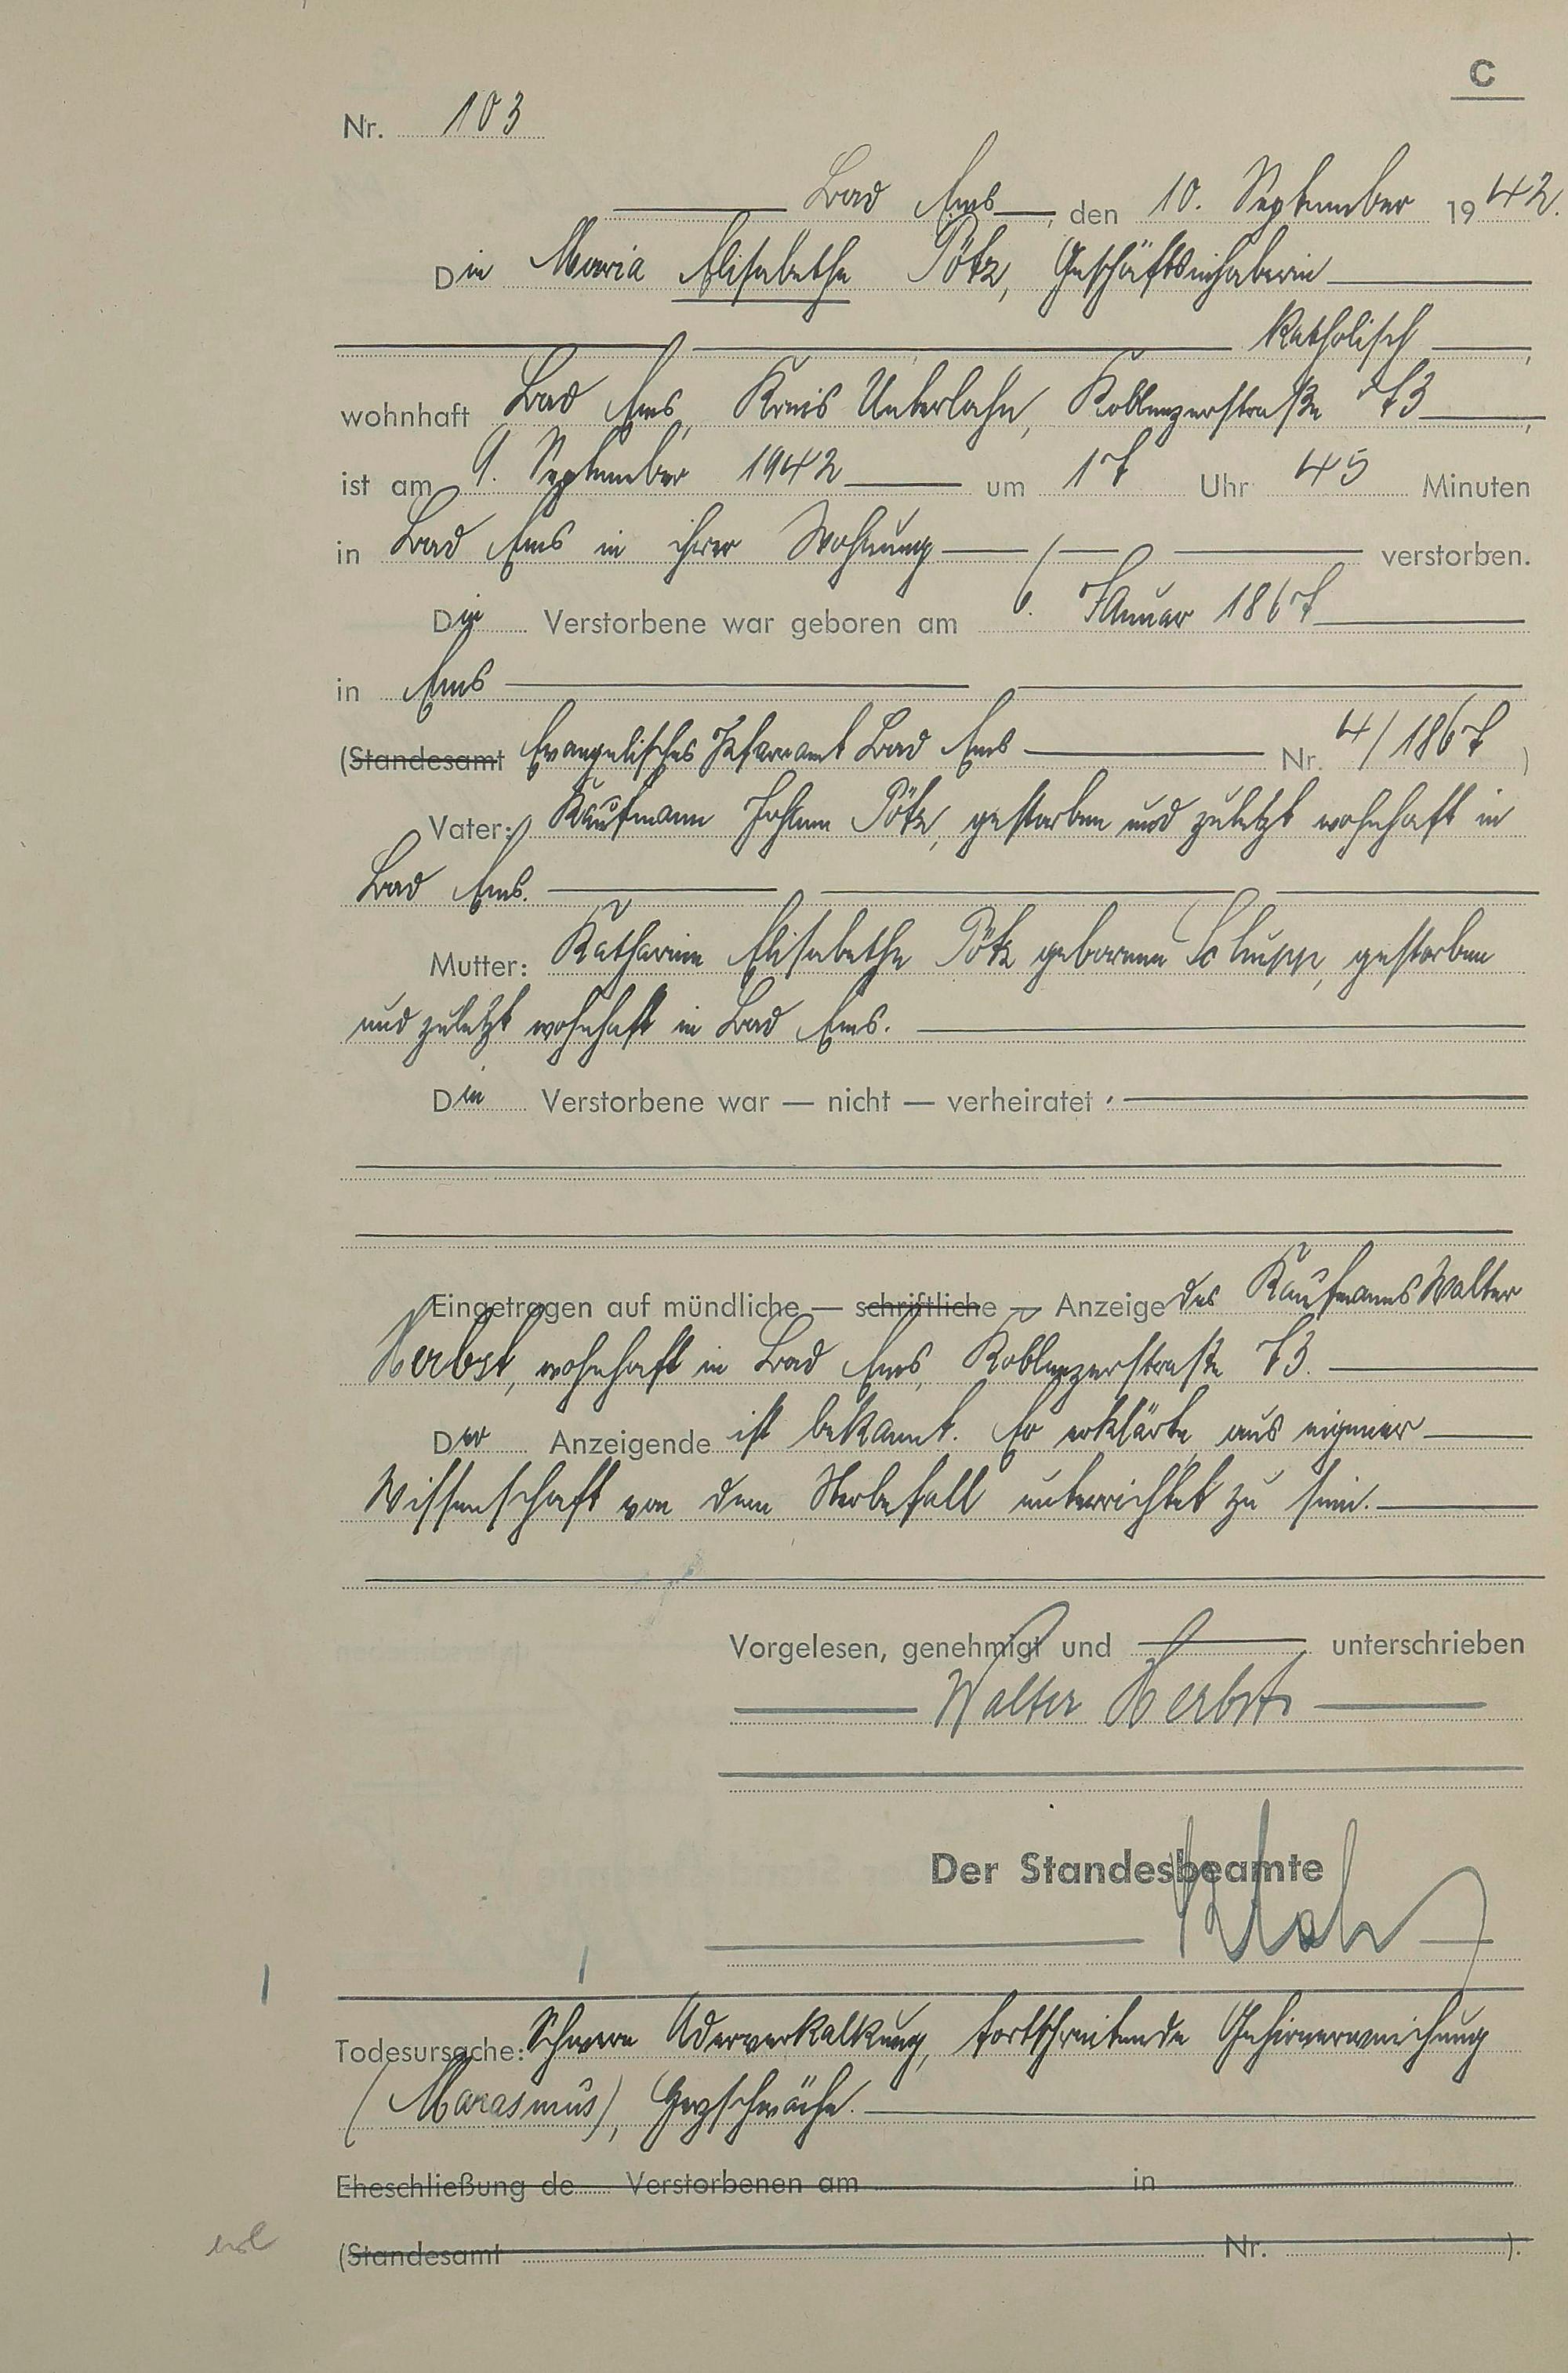 C
Nr. 103
Bad Ems, den 10. September 1942.
Die Maria Elisabethe Pötz, Geschäftsinhaberin
katholisch,
wohnhaft Bad Ems, Kreis Unterlahn, Koblenzerstraße 73,
ist am 9. September 1942 um 17 Uhr 45 Minuten
in Bad Ems in ihrer Wohnung verstorben.
Die Verstorbene war geboren am 6. Januar 1867
in Ems
(Standesamt Evangelisches Pfarramt Bad Ems Nr. 4/1867)
Vater: Kaufmann Johann Pötz, gestorben und zuletzt wohnhaft in
Bad Ems.
Mutter: Katharine Elisabethe Pötz geborene Schupp, gestorben
und zuletzt wohnhaft in Bad Ems.
Die Verstorbene war — nicht — verheiratet.
Eingetragen auf mündliche — schriftliche — Anzeige des Kaufmanns Walter
Herbst, wohnhaft in Bad Ems, Koblenzerstraße 73.
Der Anzeigende ist bekannt. Er erklärte, aus eigener
Wissenschaft von dem Sterbefall unterrichtet zu sein.
Vorgelesen, genehmigt und unterschrieben
Walter Herbst
Der Standesbeamte
Todesursache: Schwere Aderverkalkung, fortschreitende Gehirnerweichung
(Marasmus), Herzschwäche.
Eheschließung de Verstorbenen am in
(Standesamt Nr. ).